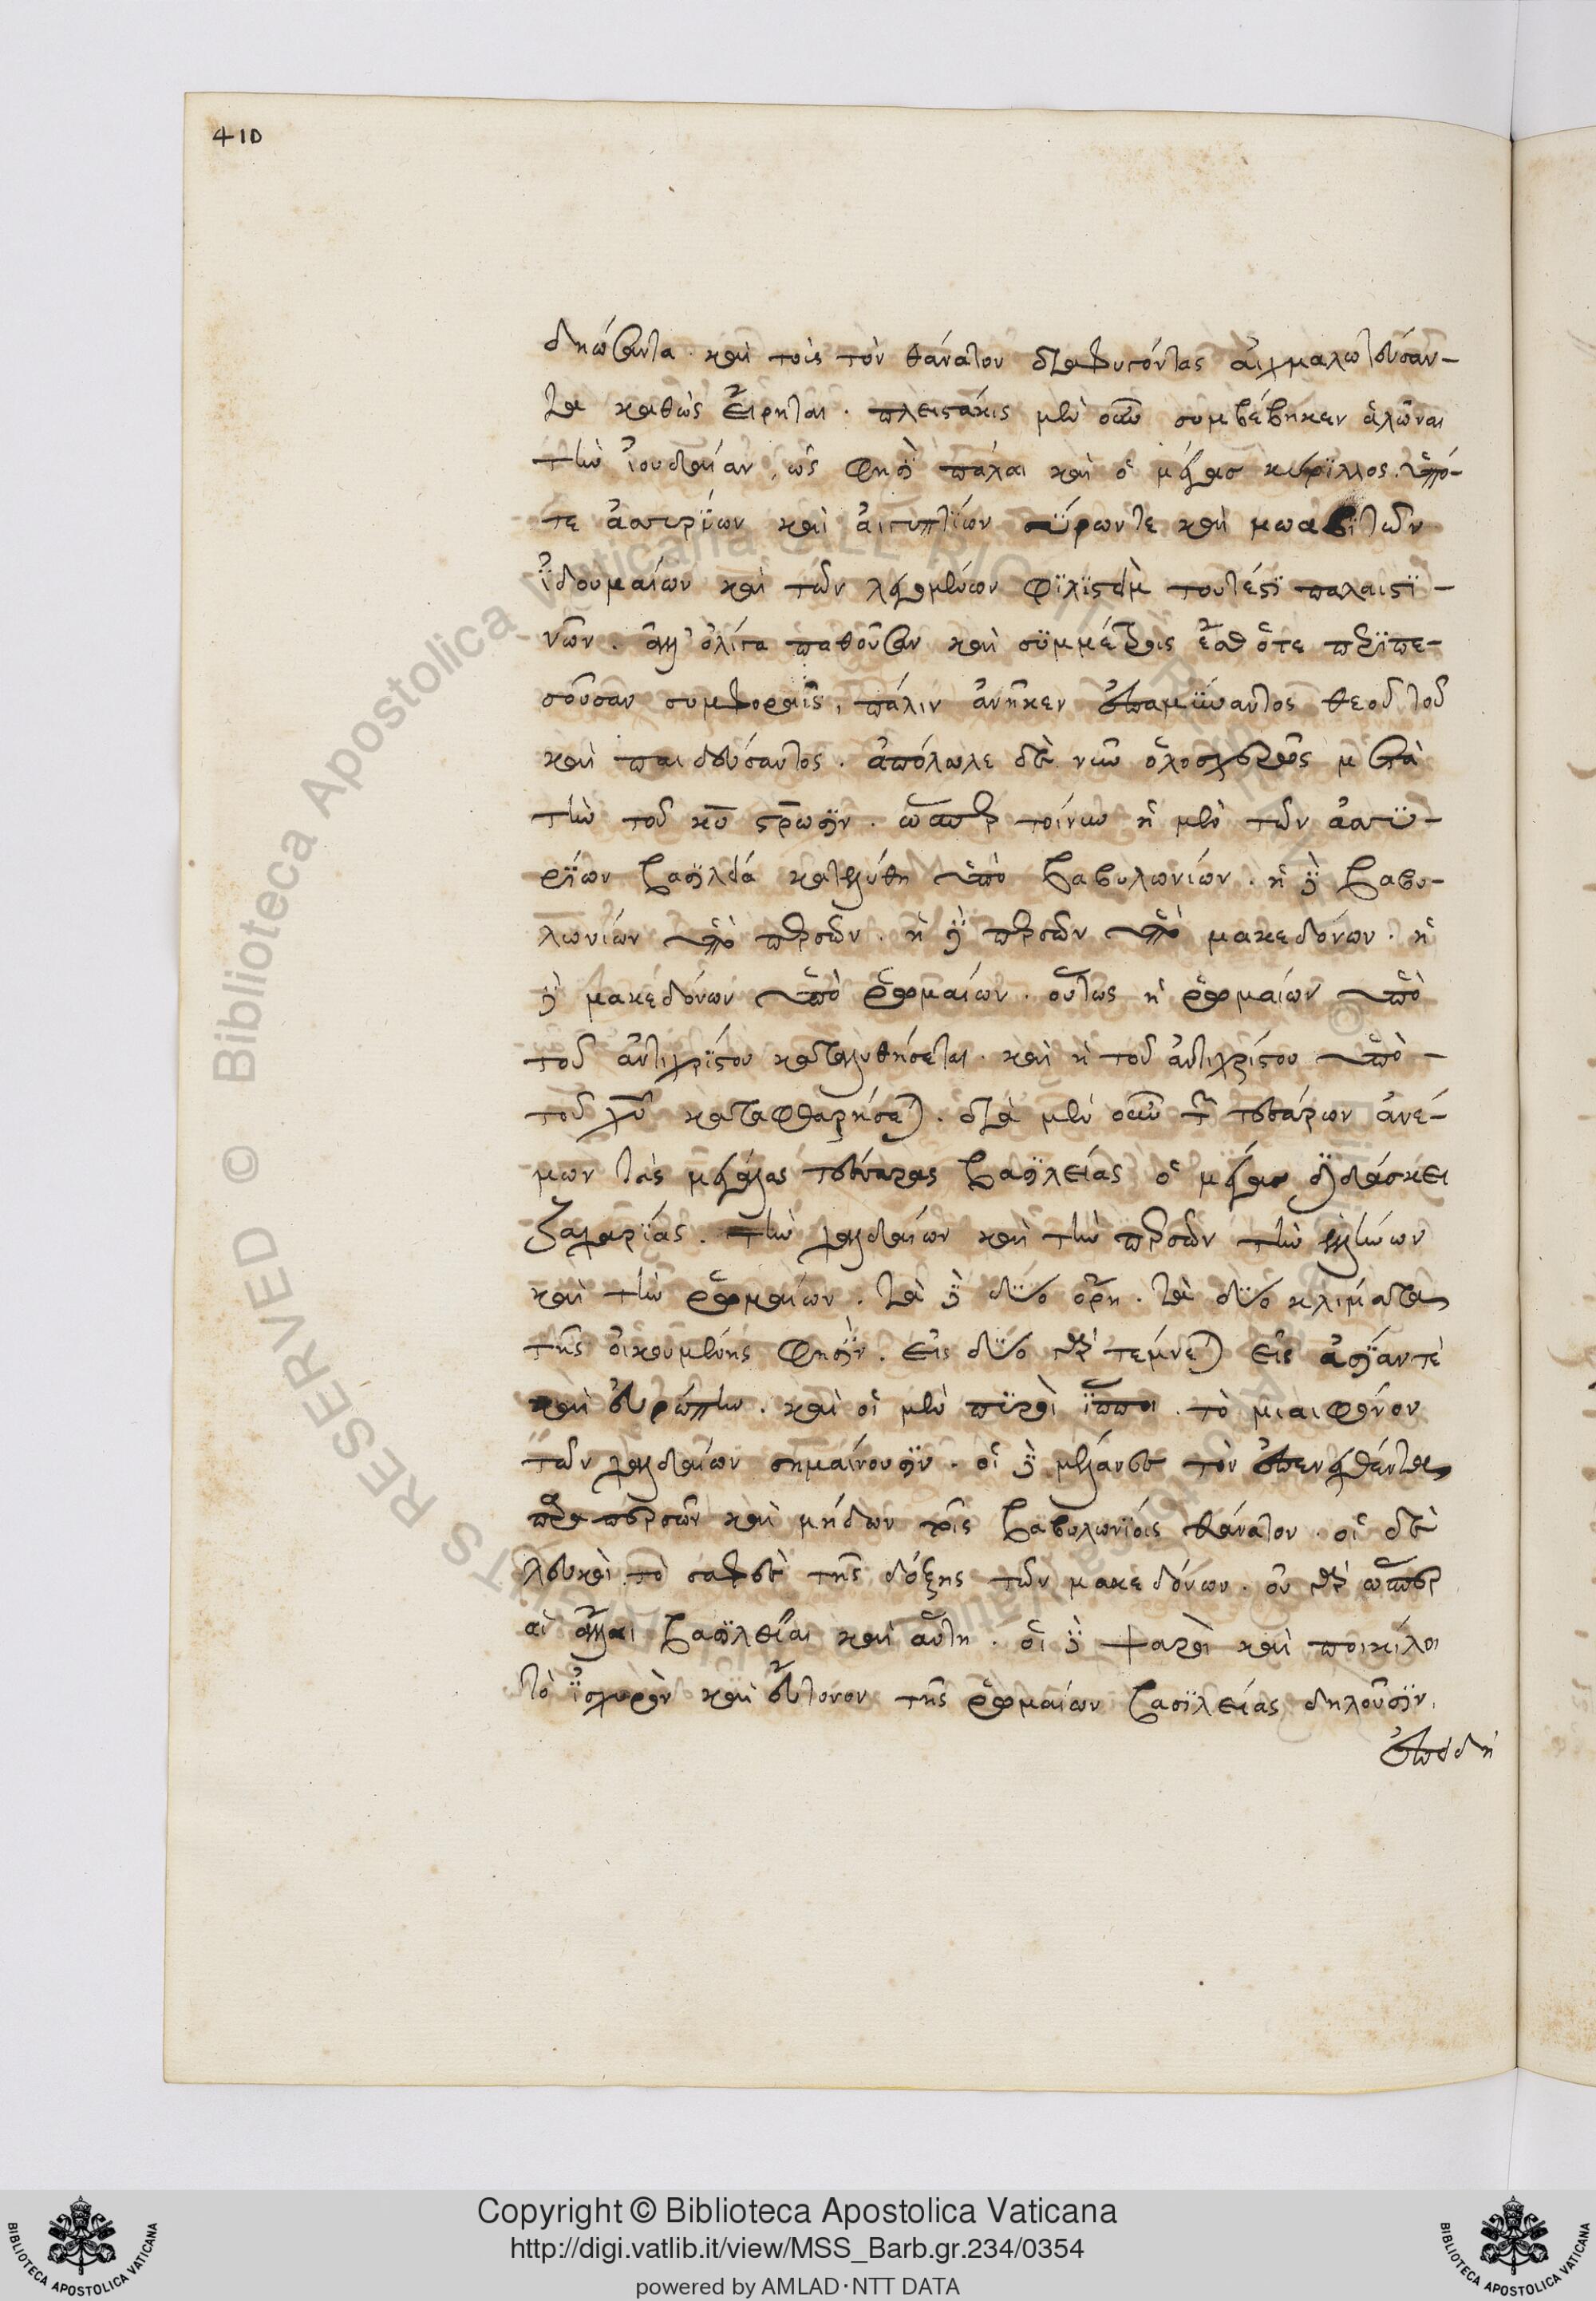 410
δηώσαντα. καὶ τοὺς τὸν θάνατον διαφυγόντας αἰχμαλωτεύσαν-
τα καθὼς εἴρηται. πλειστάκις μὲν οὖν συμβέβηκεν ἁλῶναι
τὴν ἰουδαίαν, ὥς φησὶ πάλαι καὶ ὁ μέγας κύριλλος. ὑπό-
τε ἀσσυρίων καὶ αἰγυπτίων σύρωντε καὶ μωαβιτῶν
ἰδουμαίων καὶ τῶν λεγομένων φιλιστιεὶμ τουτέστι παλαιστι-
νῶν. ἀλλ' ὀλίγα παθοῦσαν καὶ συμμέτροις ἔσθ' ὅτε περιπε-
σοῦσαν συμφοραῖς, πάλιν ἀνῆκεν ἐπαμύναντος θεοῦ τοῦ
καὶ παιδεύσαντος. ἀπόλωλε δὲ νῦν ὁλοσχερῶς μετὰ
τὴν τοῦ κυ στρωσιν. ὥσπερ τοίνυν ἡ μὲν τῶν ἀσσυ-
ρίων βασιλεία κατελύθη ὑπὸ βαβυλωνίων. ἡ δὲ βαβυ-
λωνίων ὑπὸ περσῶν. ἡ δὲ περσῶν ὑπὸ μακεδόνων. ἡ
δὲ μακεδόνων ὑπὸ ῥωμαίων. οὕτως ἡ ῥωμαίων ὑπὸ
τοῦ ἀντιχρίστου καταλυθήσεται. καὶ ἡ τοῦ ἀντιχρίστου ὑπὸ
τοῦ χυ καταφθαρήσεται. διὰ μὲν οὖν τῶν τεσσάρων ἀνέ-
μων τὰς μεγάλας τέσσαρας βασιλείας ὁ μέγας διδάσκει
ζαχαρίας. τὴν χαλδαίων καὶ τὴν περσῶν τὴν ἑλλήνων
καὶ τὴν ῥωμαίων. τὰ δὲ δύο ὄρη. τὰ δύο κλίματα
τῆς οἰκουμένης φησὶν. εἰς δύο γὰρ τέμνεται εἰς ἀσίαν τὲ
καὶ εὐρώπην. καὶ οἱ μὲν πυροὶ ἵπποι. τὸ μιαιφόνον
τῶν χαλδαίων σημαίνουσιν. οἱ δὲ μέλανες τὸν ἐπενεχθέντα
παρα περσῶν καὶ μήδων τοῖς βαβυλωνίοις θάνατον. οἱ δὲ
λευκοὶ τὸ σαφὲς τῆς δόξης τῶν μακεδόνων. οὐ γὰρ ὥσπερ
αἱ ἄλλαι βασιλεῖαι καὶ αὕτη. οἱ δὲ ψαροὶ καὶ ποικίλοι
τὸ ἰσχυρὸν καὶ εὔτονον τῆς ῥωμαίων βασιλείας δηλοῦσιν.
ἐπειδὴ
Copyright © Biblioteca Apostolica Vaticana
http://digi.vatlib.it/view/MSS_Barb.gr.234/0354
powered by AMLAD·NTT DATA